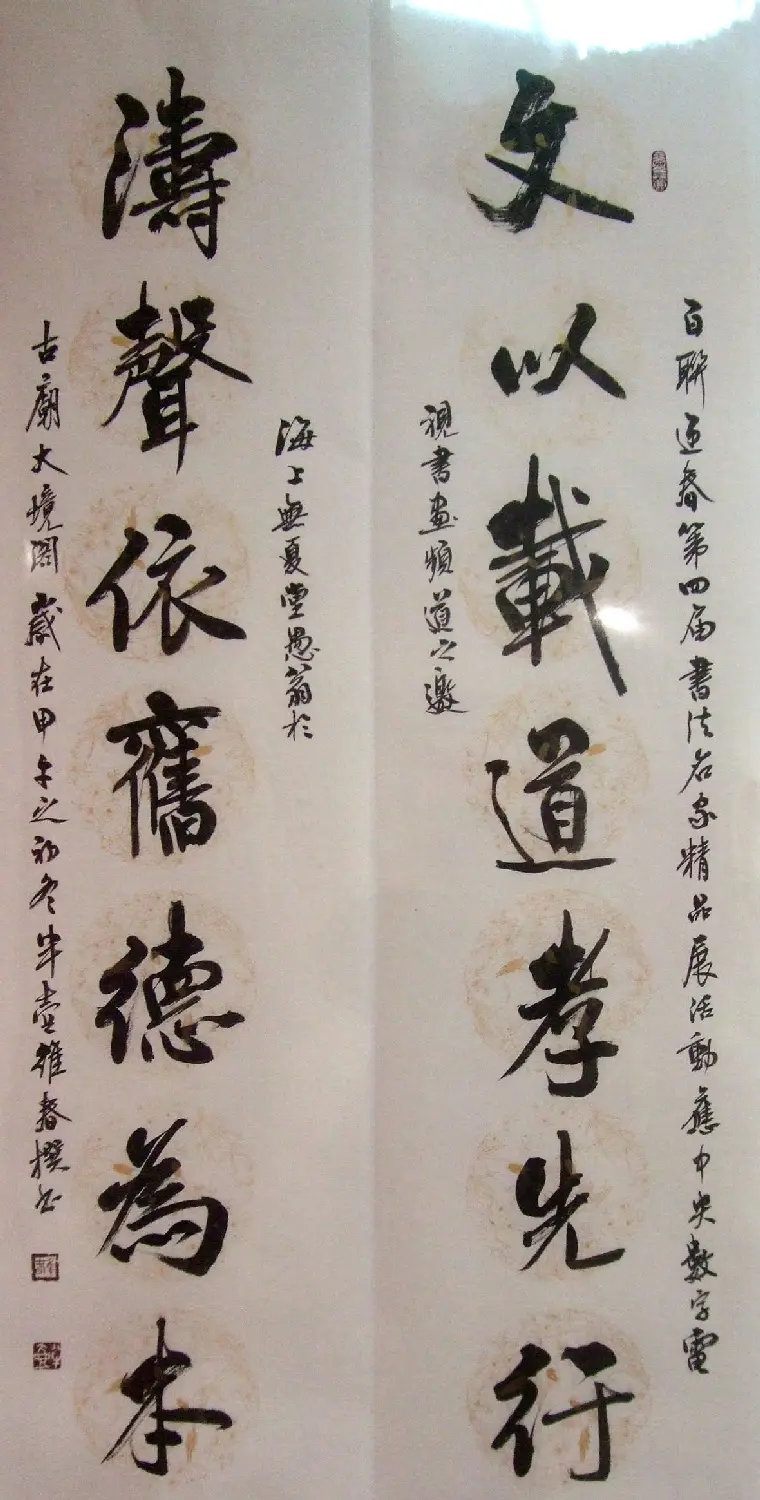 百聯迎春第四届書法名家精品展活動應中央數字電
文以載道孝先行
視書畫頻道之邀
海上無夏堂愚翁於
濤聲依舊德為本
古廟大境閣歲在甲午之初冬半壺維春撰書